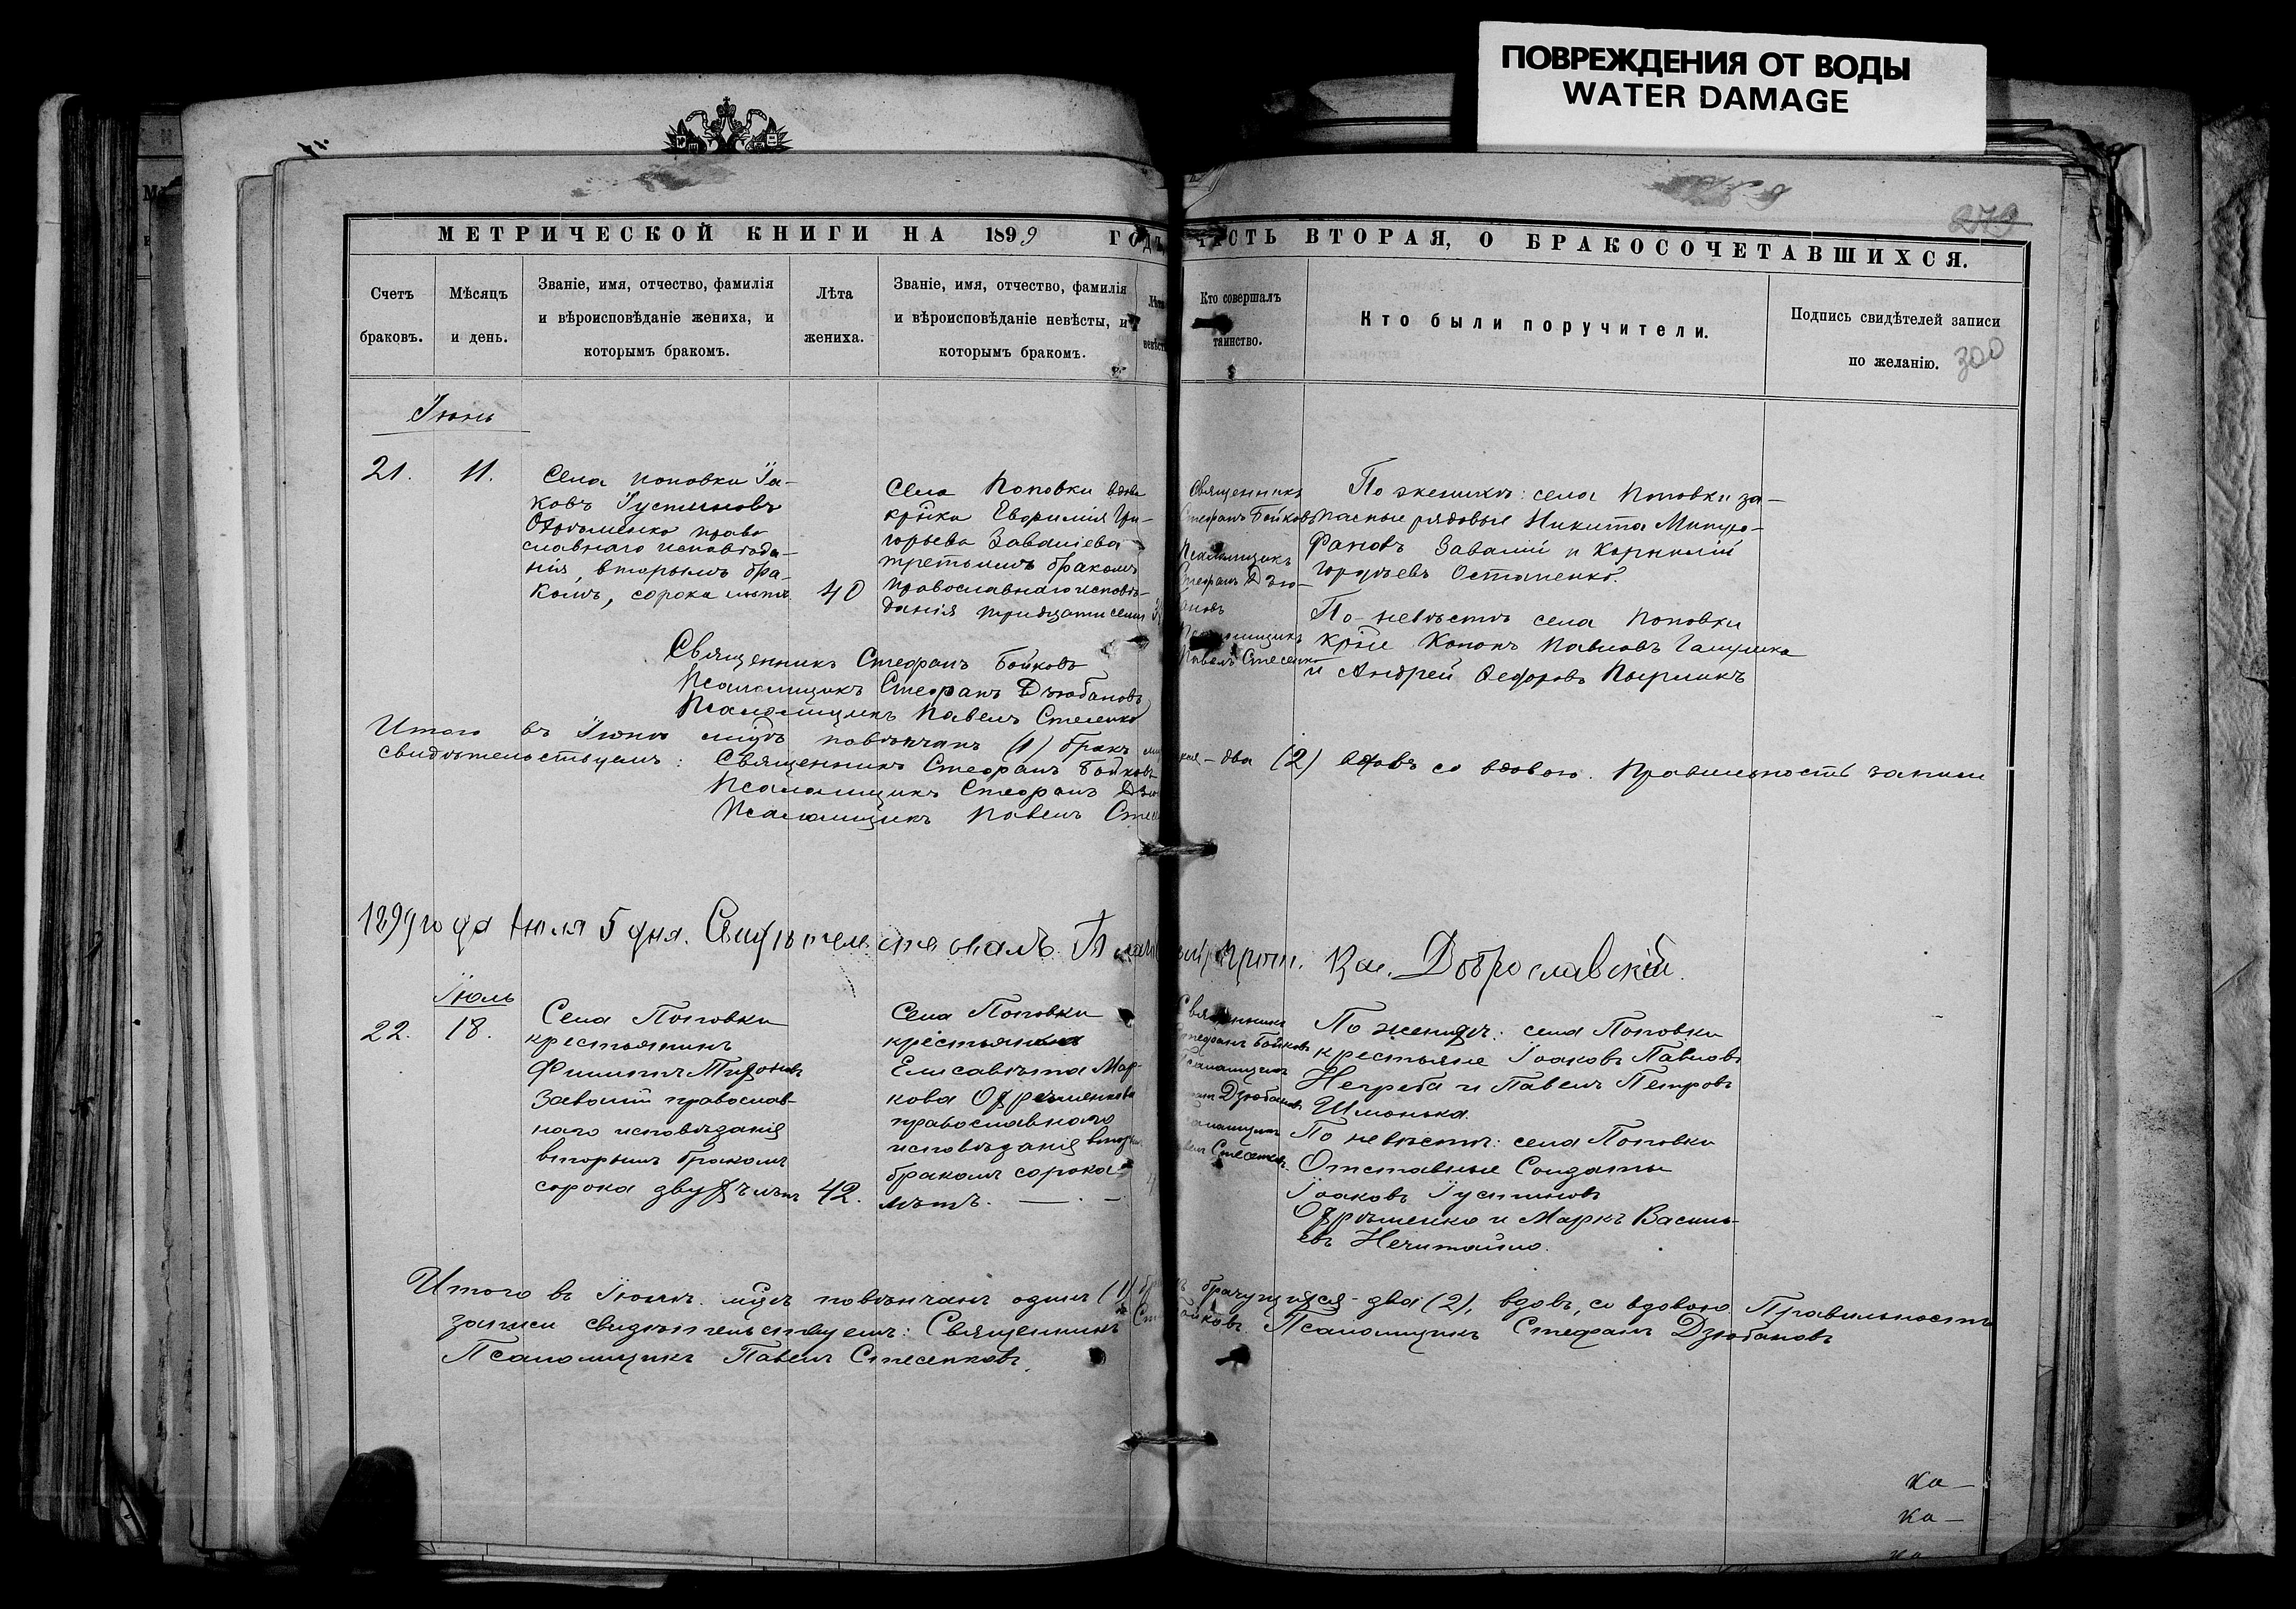 ПОВРЕЖДЕНИЯ ОТ ВОДЫ
WATER DAMAGE
МЕТРИЧЕСКОЙ КНИГИ НА 1899 ГОДЪ
ЧАСТЬ ВТОРАЯ, О БРАКОСОЧЕТАВШИХСЯ.
Счетъ
браковъ.
Мѣсяцъ
и день.
Званіе, имя, отчество, фамилія
и вѣроисповѣданіе жениха, и
которымъ бракомъ.
Лѣта
жениха.
Званіе, имя, отчество, фамилія
и вѣроисповѣданіе невѣсты, и
которымъ бракомъ.
Лѣта
невѣсты
Кто совершалъ
таинство.
Кто были поручители.
Подпись свидѣтелей записи
по желанію.
300
Іюнь
21.
11.
Села Поповки Іа-
ковъ Іустиновъ
Офрѣменко право
славнаго исповѣда-
нія, вторымъ бра-
комъ, сорока лѣтъ
40
Села Поповки вдова
кр̃нка Евфимія Гри-
горьева Заваліева
третьимъ бракомъ
православнаго исповѣ-
данія тридцати семи
Священникъ
Стефанъ Бойковъ
Псаломщикъ
Стефанъ Дзю-
бановъ
Псаломщикъ
Павелъ Стесенко
По женихѣ: села Поповки за-
пасные рядовые Никита Митро-
фановъ Завалій и Корнилій
Остапенко.
По невѣстѣ села Поповки
кр̃не Кононъ Павловъ
и Андрей Федоровъ
Священникъ Стефанъ Бойковъ
Псаломщикъ Стефанъ Дзюбановъ
Псаломщикъ Павелъ Стесенко
Итого въ Іюнѣ мцѣ повѣнчанъ (1) бракъ
два (2) вдовъ со вдовою. Правильность записи
свидѣтельствуемъ: Священникъ Стефанъ Бойковъ
Псаломщикъ Стефанъ Дзю
Псаломщикъ Павелъ Стес
1899 года Іюля 5 дня. Свидѣтельствовалъ
Прот. Доброславскій
Іюль
22.
18.
Села Поповки
крестьянинъ
Филиппъ
Завалій православ-
наго исповѣданія
вторымъ бракомъ
сорока двухъ лѣтъ
42.
Села Поповки
крестьянка
Елисавѣта Мар-
кова Офрѣменкова
православнаго
исповѣданія вторымъ
бракомъ сорока
лѣтъ. —
Священникъ
Стефанъ Бойковъ
Псаломщикъ
Дзюбановъ
Псаломщикъ
Павелъ Стесенковъ
По женихѣ: села Поповки
крестьяне Іоаковъ Павловъ
Негреба и Павелъ Петровъ
Шмонька.
По невѣстѣ: села Поповки
Отставные Солдаты
Іоаковъ Іустиновъ
Офрѣменко и Маркъ Василь-
евъ Нечитайло.
Итого въ Іюлѣ мцѣ повѣнчанъ одинъ (1) бракъ брачущихся - два (2), вдовъ, со вдовою. Правильность
записи свидѣтельствуемъ: Священникъ Ст Бойковъ. Псаломщикъ Стефанъ Дзюбановъ
Псаломщикъ Павелъ Стесенковъ.
ка —
ка —